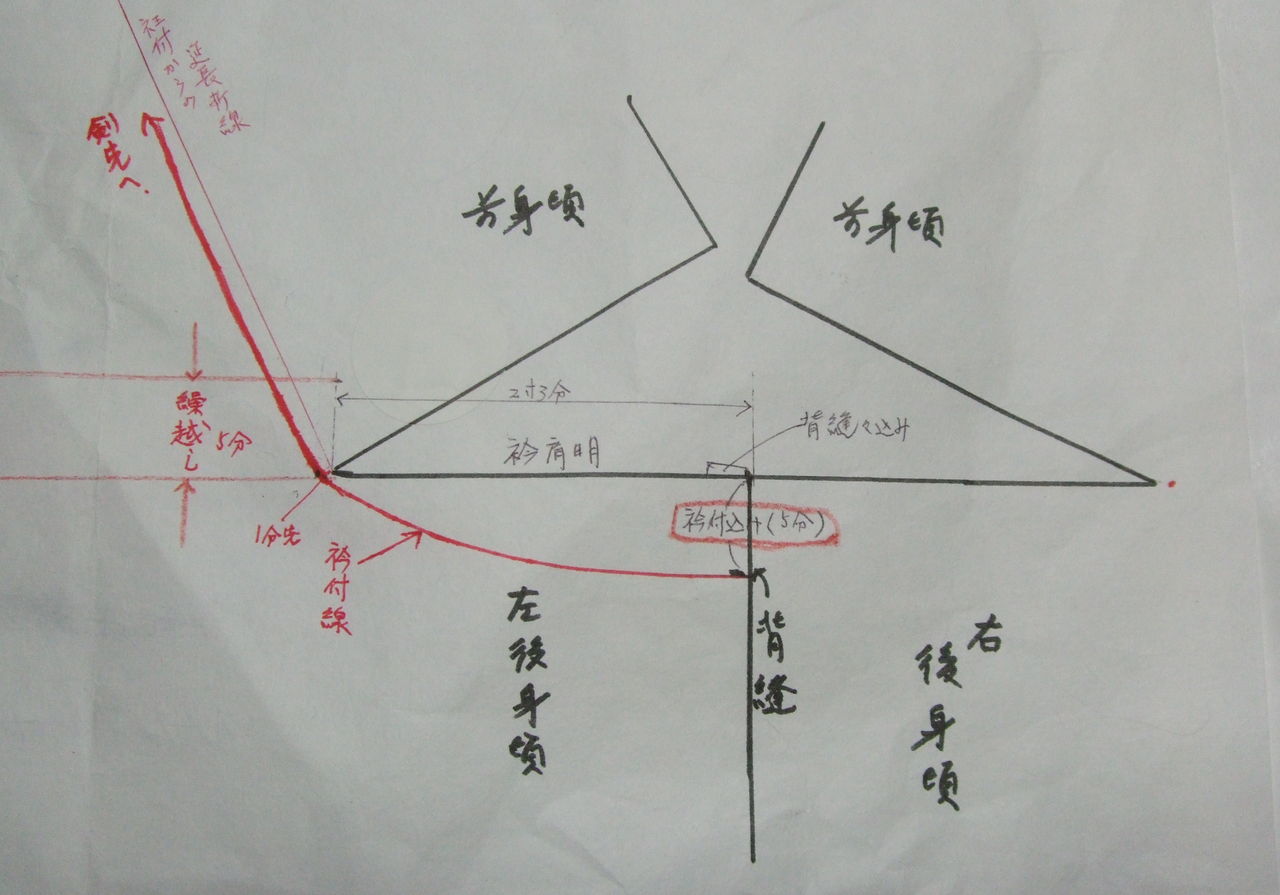 衽付からの
延長折線
剣先へ.
前身頃
前身頃
2寸3分
背縫々込み
衿肩明
繰越し
5分
衿付込み(5分)
1分先
衿付線
左後身頃
背縫
右後身頃